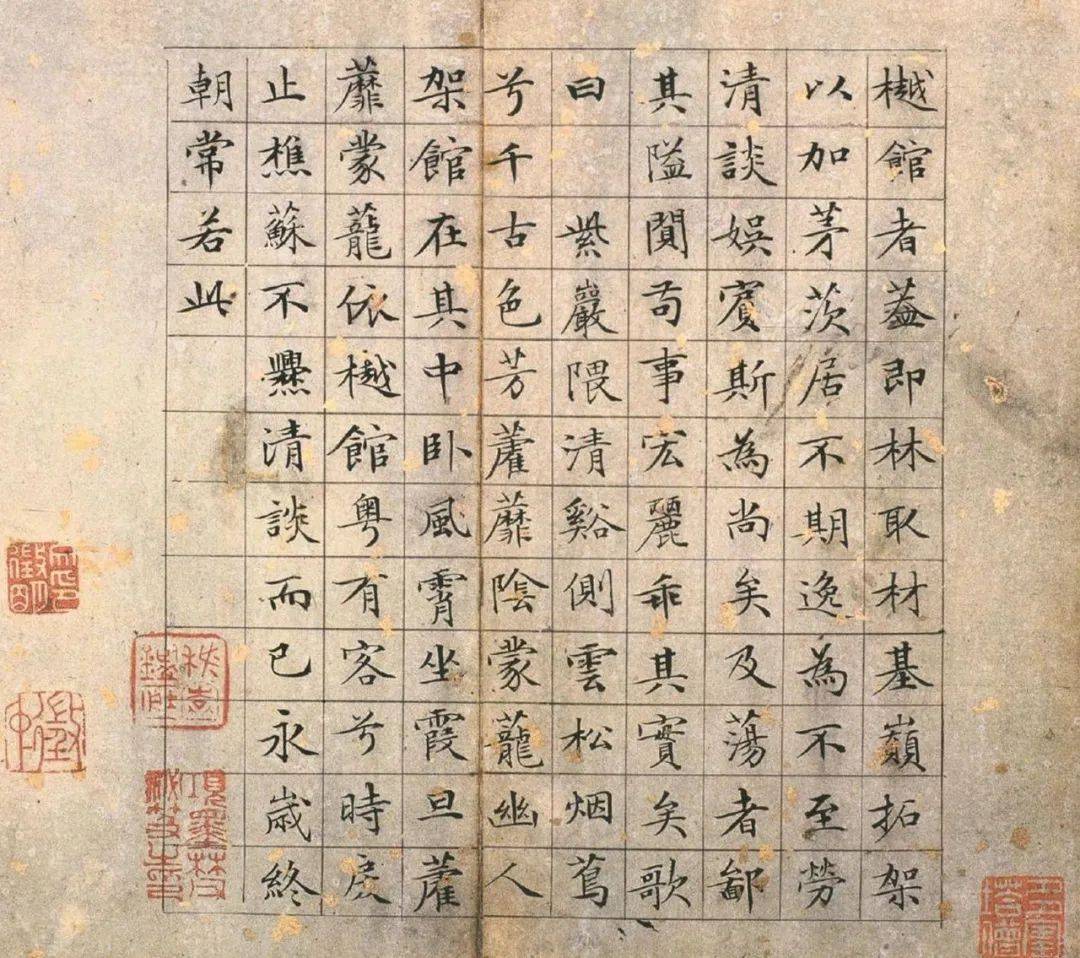 樾館者葢即林取材基巔拓架
以加茅茨居不期逸為不至勞
清談娛賓斯為尚矣及蕩者鄙
其隘闃苟事宏麗乖其實矣歌
曰 紫巖隈清谿側雲松烟蔦
兮千古色芳藋蘼陰蒙蘢幽人
架館在其中卧風霄坐霞旦藋
蘼蒙蘢依樾館粵有客兮時戾
止樵蘇不爨清談而已永歲終
朝常若此